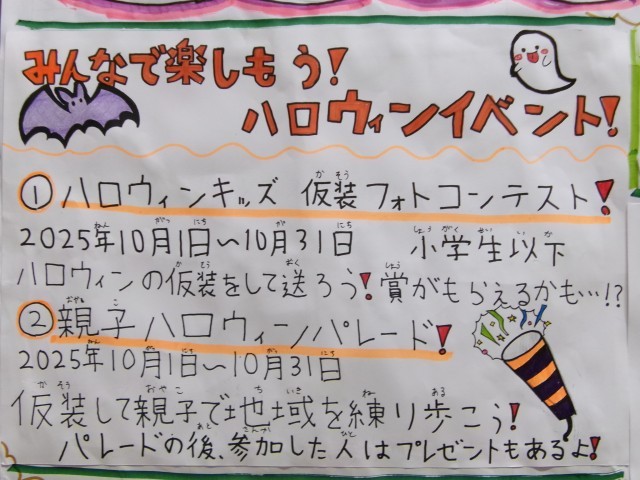 みんなで楽しもう!
ハロウィンイベント!
①ハロウィンキッズ 仮装フォトコンテスト!
2025年10月1日〜10月31日 小学生以下
ハロウィンの仮装をして送ろう!賞がもらえるかも…!?
②親子ハロウィンパレード!
2025年10月1日〜10月31日
仮装して親子で地域を練り歩こう!
パレードの後、参加した人はプレゼントもあるよ!